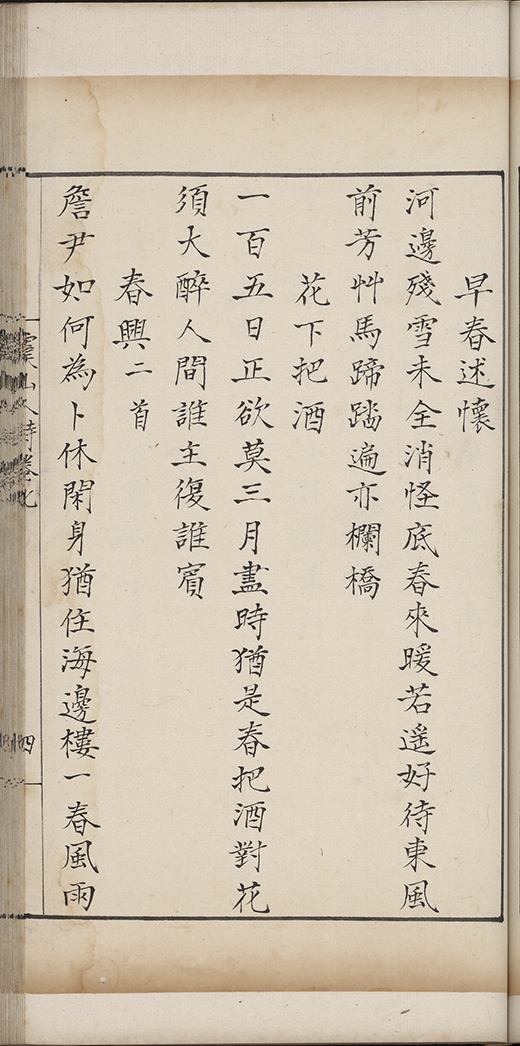 早春述懷
河邊殘雪未全消怪底春來暖若遥好待東風
前芳艸馬蹄踏遍亦欄橋
花下把酒
一百五日正欲莫三月盡時猶是春把酒對花
須大醉人間誰主復誰賓
春興二首
詹尹如何為卜休閑身猶住海邊樓一春風雨
山人詩卷七
四